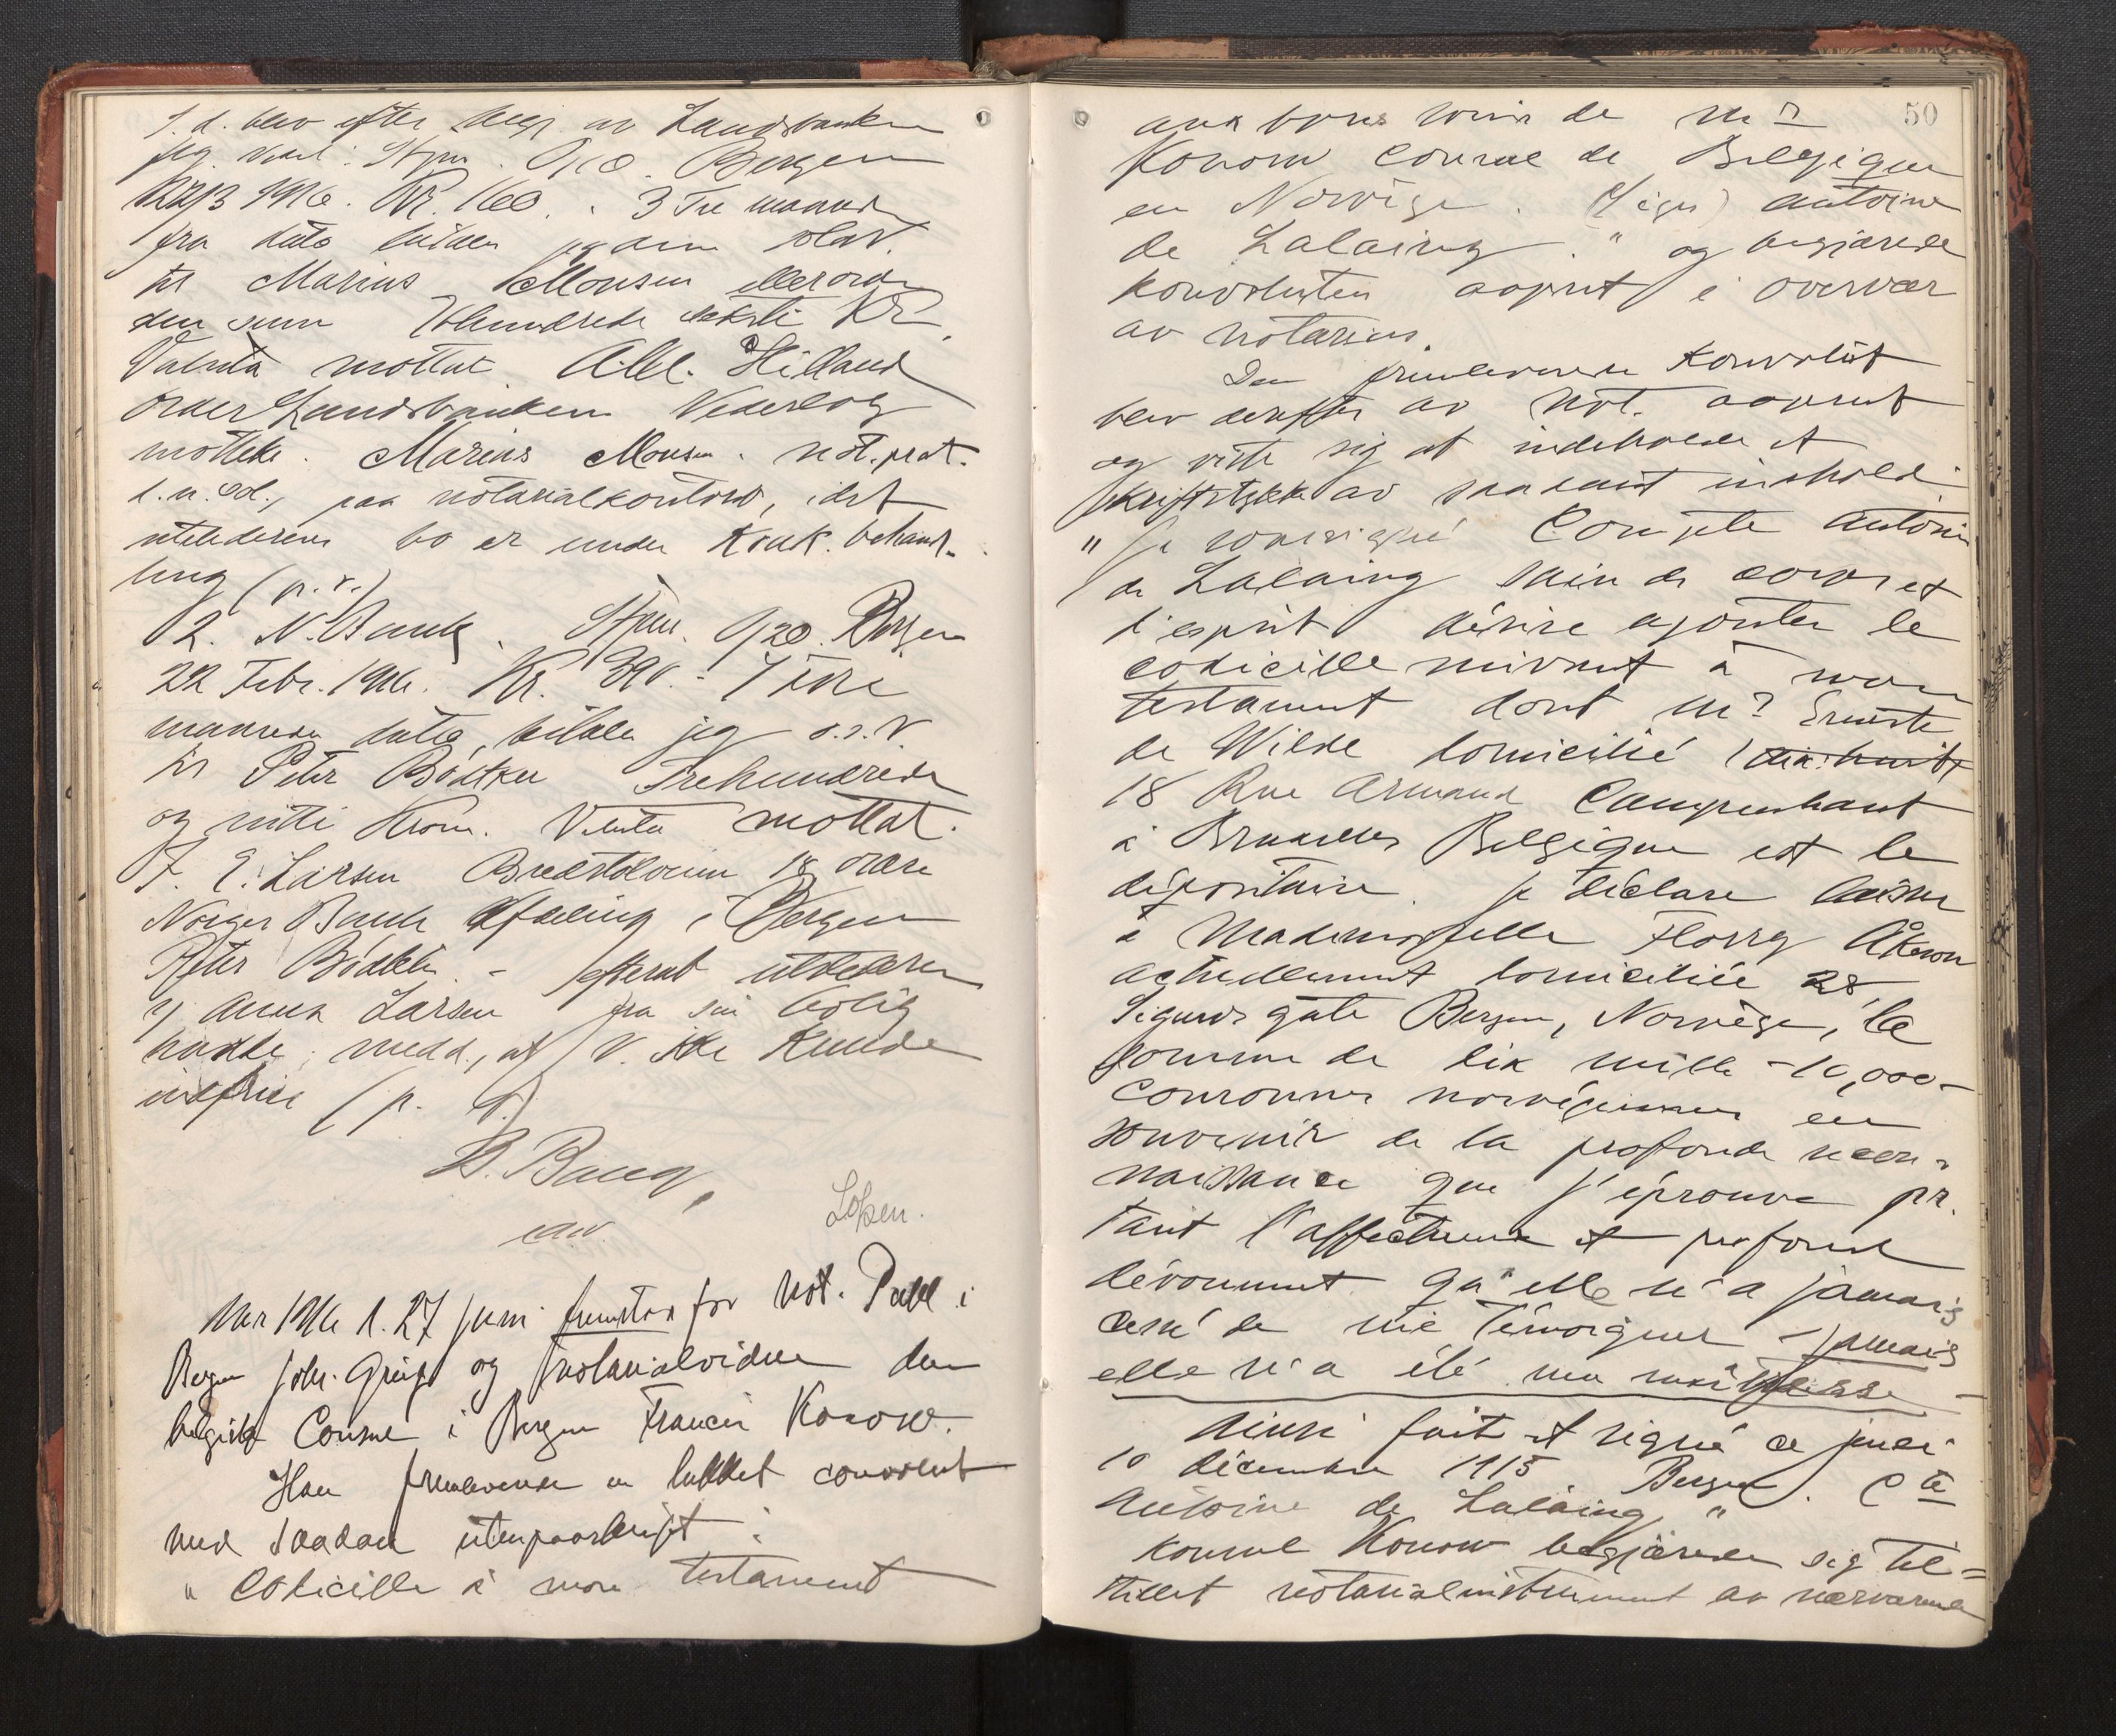 s. d. blev efter begj. av Landsbanken
jeg
Bergen
22/3 1916. Kr. 160. 3 Tre maaneder
fra dato
til Marius Monsen eller ordre
den sum Etthundrede seksti Kr.
Valuta mottat. Hilland
order Landsbanken Vederlag
mottatt. Marius Monsen. not. prot.
paa notarialkontoret, idet
utstederens bo er under Konk. behand-
ling (p. r.)
2. N. Bank. Stpm. 0/20. Bergen
22 Febr. 1916. Kr. 390.- Fire
maaneder dato, betaler jeg o.s.v.
til Peter Bödtker Trehundrede
og nitti Kron. Valuta mottat.
J. E. Larsen Bredstolveien 18 ordre
Norges Bank Afdeling i Bergen
Peter Bödtker -
Anna Larsen fra sin bolig
hadde medd., at V. ikke kunde
indfries (p. r.)
B. Bang,
Aar 1916 d. 27 juni fremstod for Not. Publ. i
Bergen Joh. Grieg og notarialvidne den
belgiske Consul i Bergen Francis Konow.
Han fremleverede en lukket convolut
med saadan utenpaaskrift:
"Codicille à mon testament
50
aux bons soins de Mr
Konow Consul de Belgique
en Norvège. (sign) Antoine
de Lalaing." og begjærede
konvolutten aapnet i overvær
av notarius.
Den fremleverede Konvolut
blev derefter av Not. aapnet
og viste sig at indeholde et
skriftstykke av saadant indhold:
"Je soussigné Compte Antoine
de Lalaing sain de corps et
d'esprit désire ajouter le
codicille suivant à mon
testament dont Mr Erneste
de Wilde domicilié dix-huit
18 Rue Armand Campenhaut
à Bruxelles Belgique est le
dépositaire. Je déclare laisser
à Mademoiselle Florry
actuellement domiciliée 28
Sigurds gate Bergen, Norvège, la
somme de dix mille -10,000-
couronnes norvégiennes en
souvenir de la profonde recon-
naissance que j'éprouve pr.
tant l'affectueux et profond
dévoument qu'elle n'a jamais
cessé de me témoigner - jamais
elle n'a été ma maîtresse -
Ainsi fait et signé ce jeudi
10 décembre 1915 Bergen. Cte
Antoine de Lalaing"
Konsul Konow begjærede sig til-
stillet notarialinstrument av nærværende